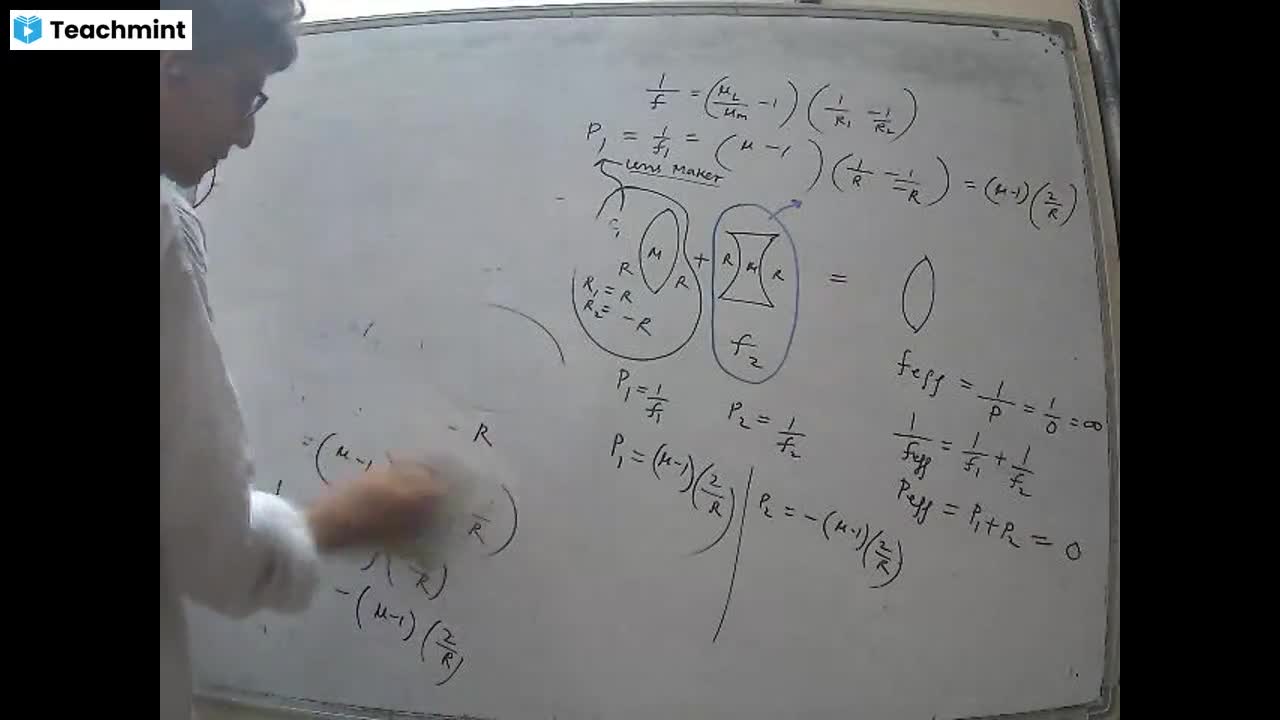 Teachmint
1/f = (μL/μm - 1) (1/R1 - 1/R2)
P1 = 1/f1 = (μ - 1) (1/R - 1/-R) = (μ-1)(2/R)
Lens Maker
R μ R + R μ R =
R1 = R
R2 = -R
f2
P1 = 1/f1
P2 = 1/f2
feff = 1/P = 1/0 = ∞
1/feff = 1/f1 + 1/f2
Peff = P1+P2 = 0
P1 = (μ-1)(2/R)
P2 = -(μ-1)(2/R)
- R
= (μ-1
R)
R)
- (μ-1) (2/R)